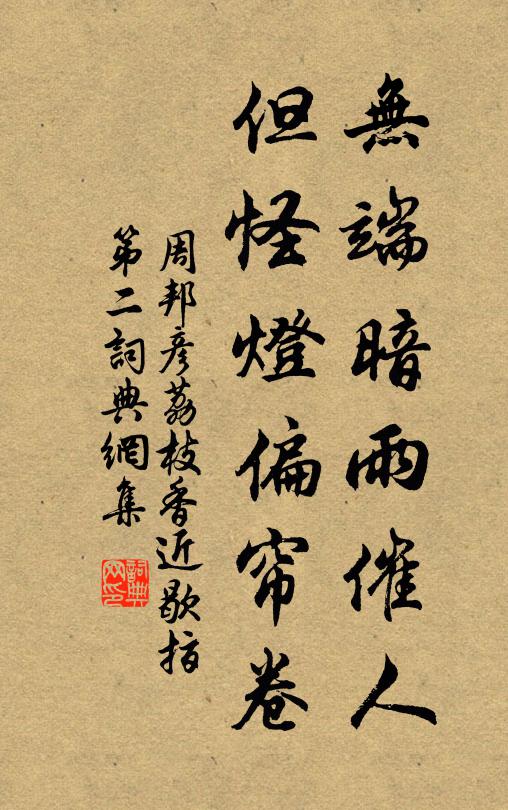 無端暗雨催人
但怪燈偏帘卷
周邦彦荔枝香近歇指
第二詞典網集
詞典網印